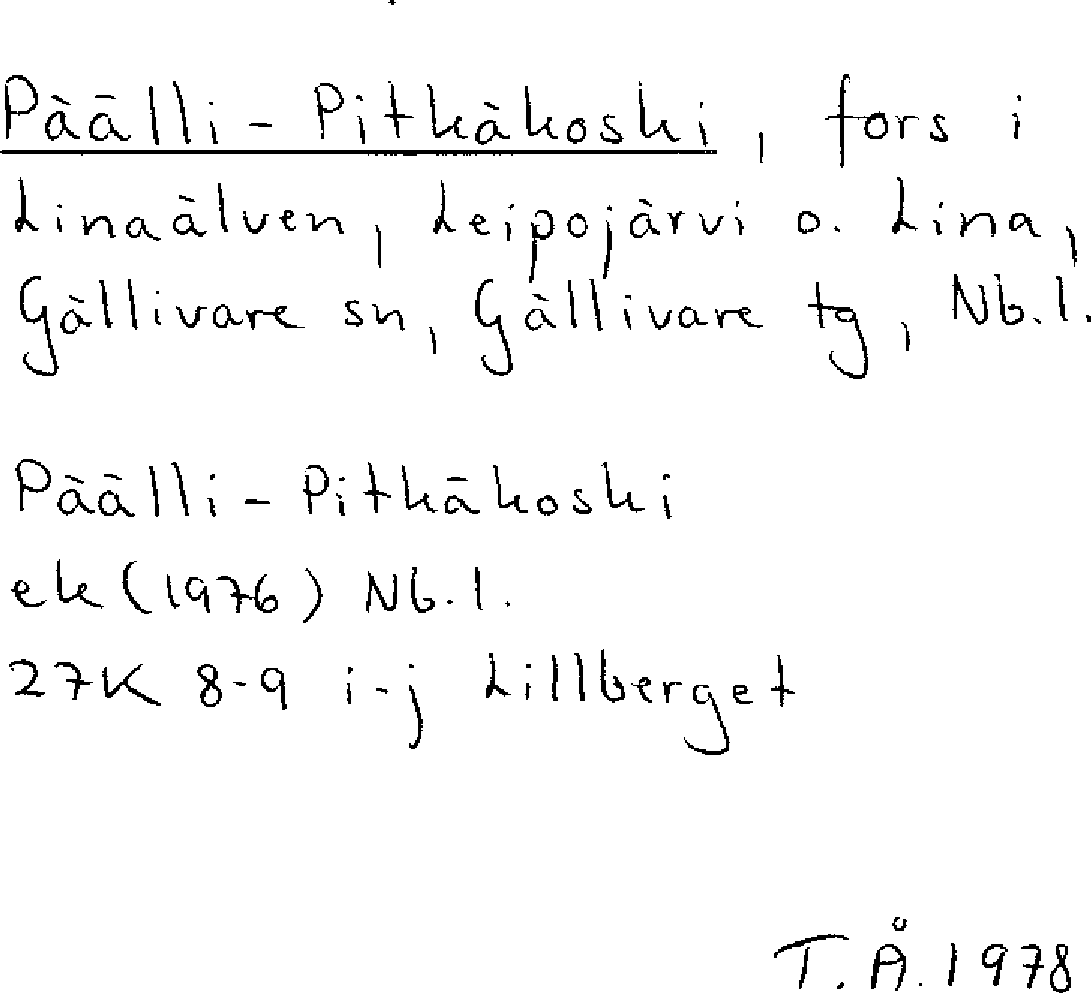 Päälli-Pitkäkoski, fors i
Linaälven, Leipojärvi o. Lina,
Gällivare sn, Gällivare tg, Nb.l.
Päälli-Pitkäkoski
ek (1976) Nb.l.
27K 8-9 i-j Lillberget
T.Å. 1978